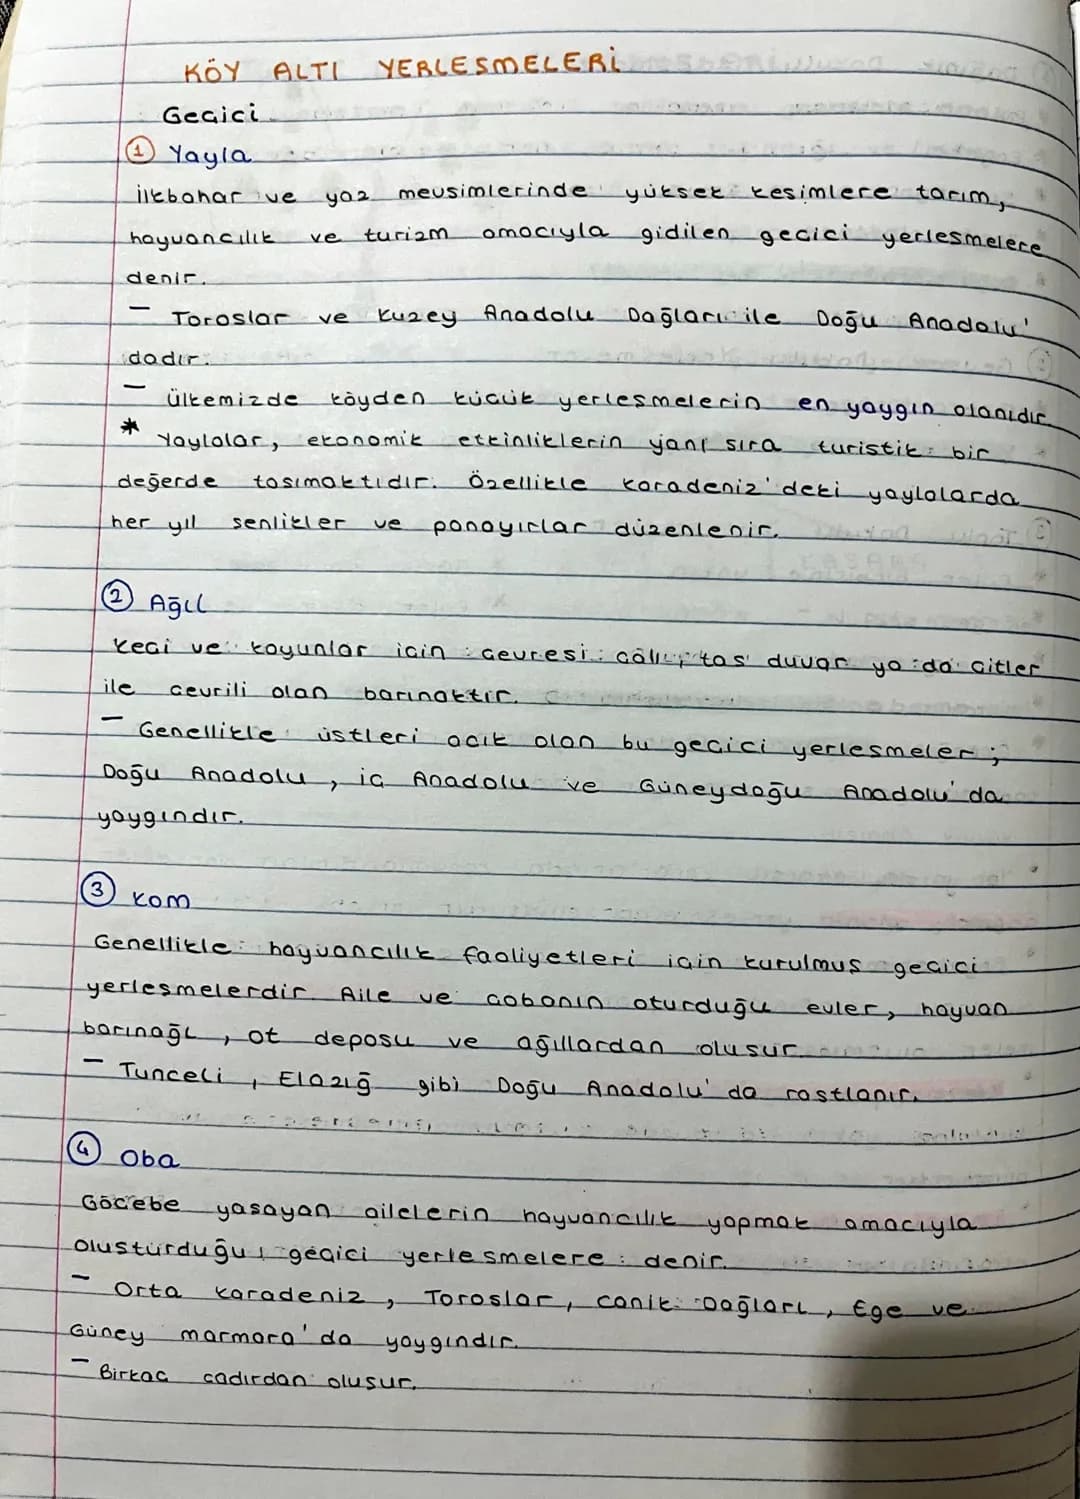 KÖY ALTI YERLESMELERİ
Gecici
1 Yayla
İlkbahar ve yaz mevsimlerinde yüksek kesimlere tarım,
hayvancılık ve turizm amacıyla gidilen gecici yerlesmelere
denir.
- Toroslar ve Kuzey Anadolu Dağları ile Doğu Anadolu'
dadır.
- ülkemizde köyden kücük yerlesmelerin en yaygın olanıdır.
* Yaylalar, ekonomik etkinliklerin yanı sıra turistik bir
değerde tasımaktıdır. Özellikle Karadeniz'deki yaylalarda
her yıl senlikler ve panayırlar düzenlenir.
2 Ağıl
Keci ve koyunlar icin cevresi calı, tas duvar ya da citler
ile cevrili olan barınaktır.
- Genellikle üstleri acık olan bu gecici yerlesmeler ;
Doğu Anadolu, ic Anadolu ve Güneydoğu Anadolu'da
yaygındır.
3 Kom
Genellikle hayvancılık faaliyetleri icin kurulmus gecici
yerlesmelerdir. Aile ve cobanın oturduğu evler, hayvan
barınağı, ot deposu ve ağıllardan olusur.
- Tunceli, Elazığ gibi Doğu Anadolu'da rastlanır.
4 Oba
Göcebe yasayan ailelerin hayvancılık yapmak amacıyla
olusturduğu gecici yerlesmelere denir.
- Orta Karadeniz, Toroslar, Canik Dağları, Ege ve
Güney marmara'da yaygındır.
- Birkac cadırdan olusur.